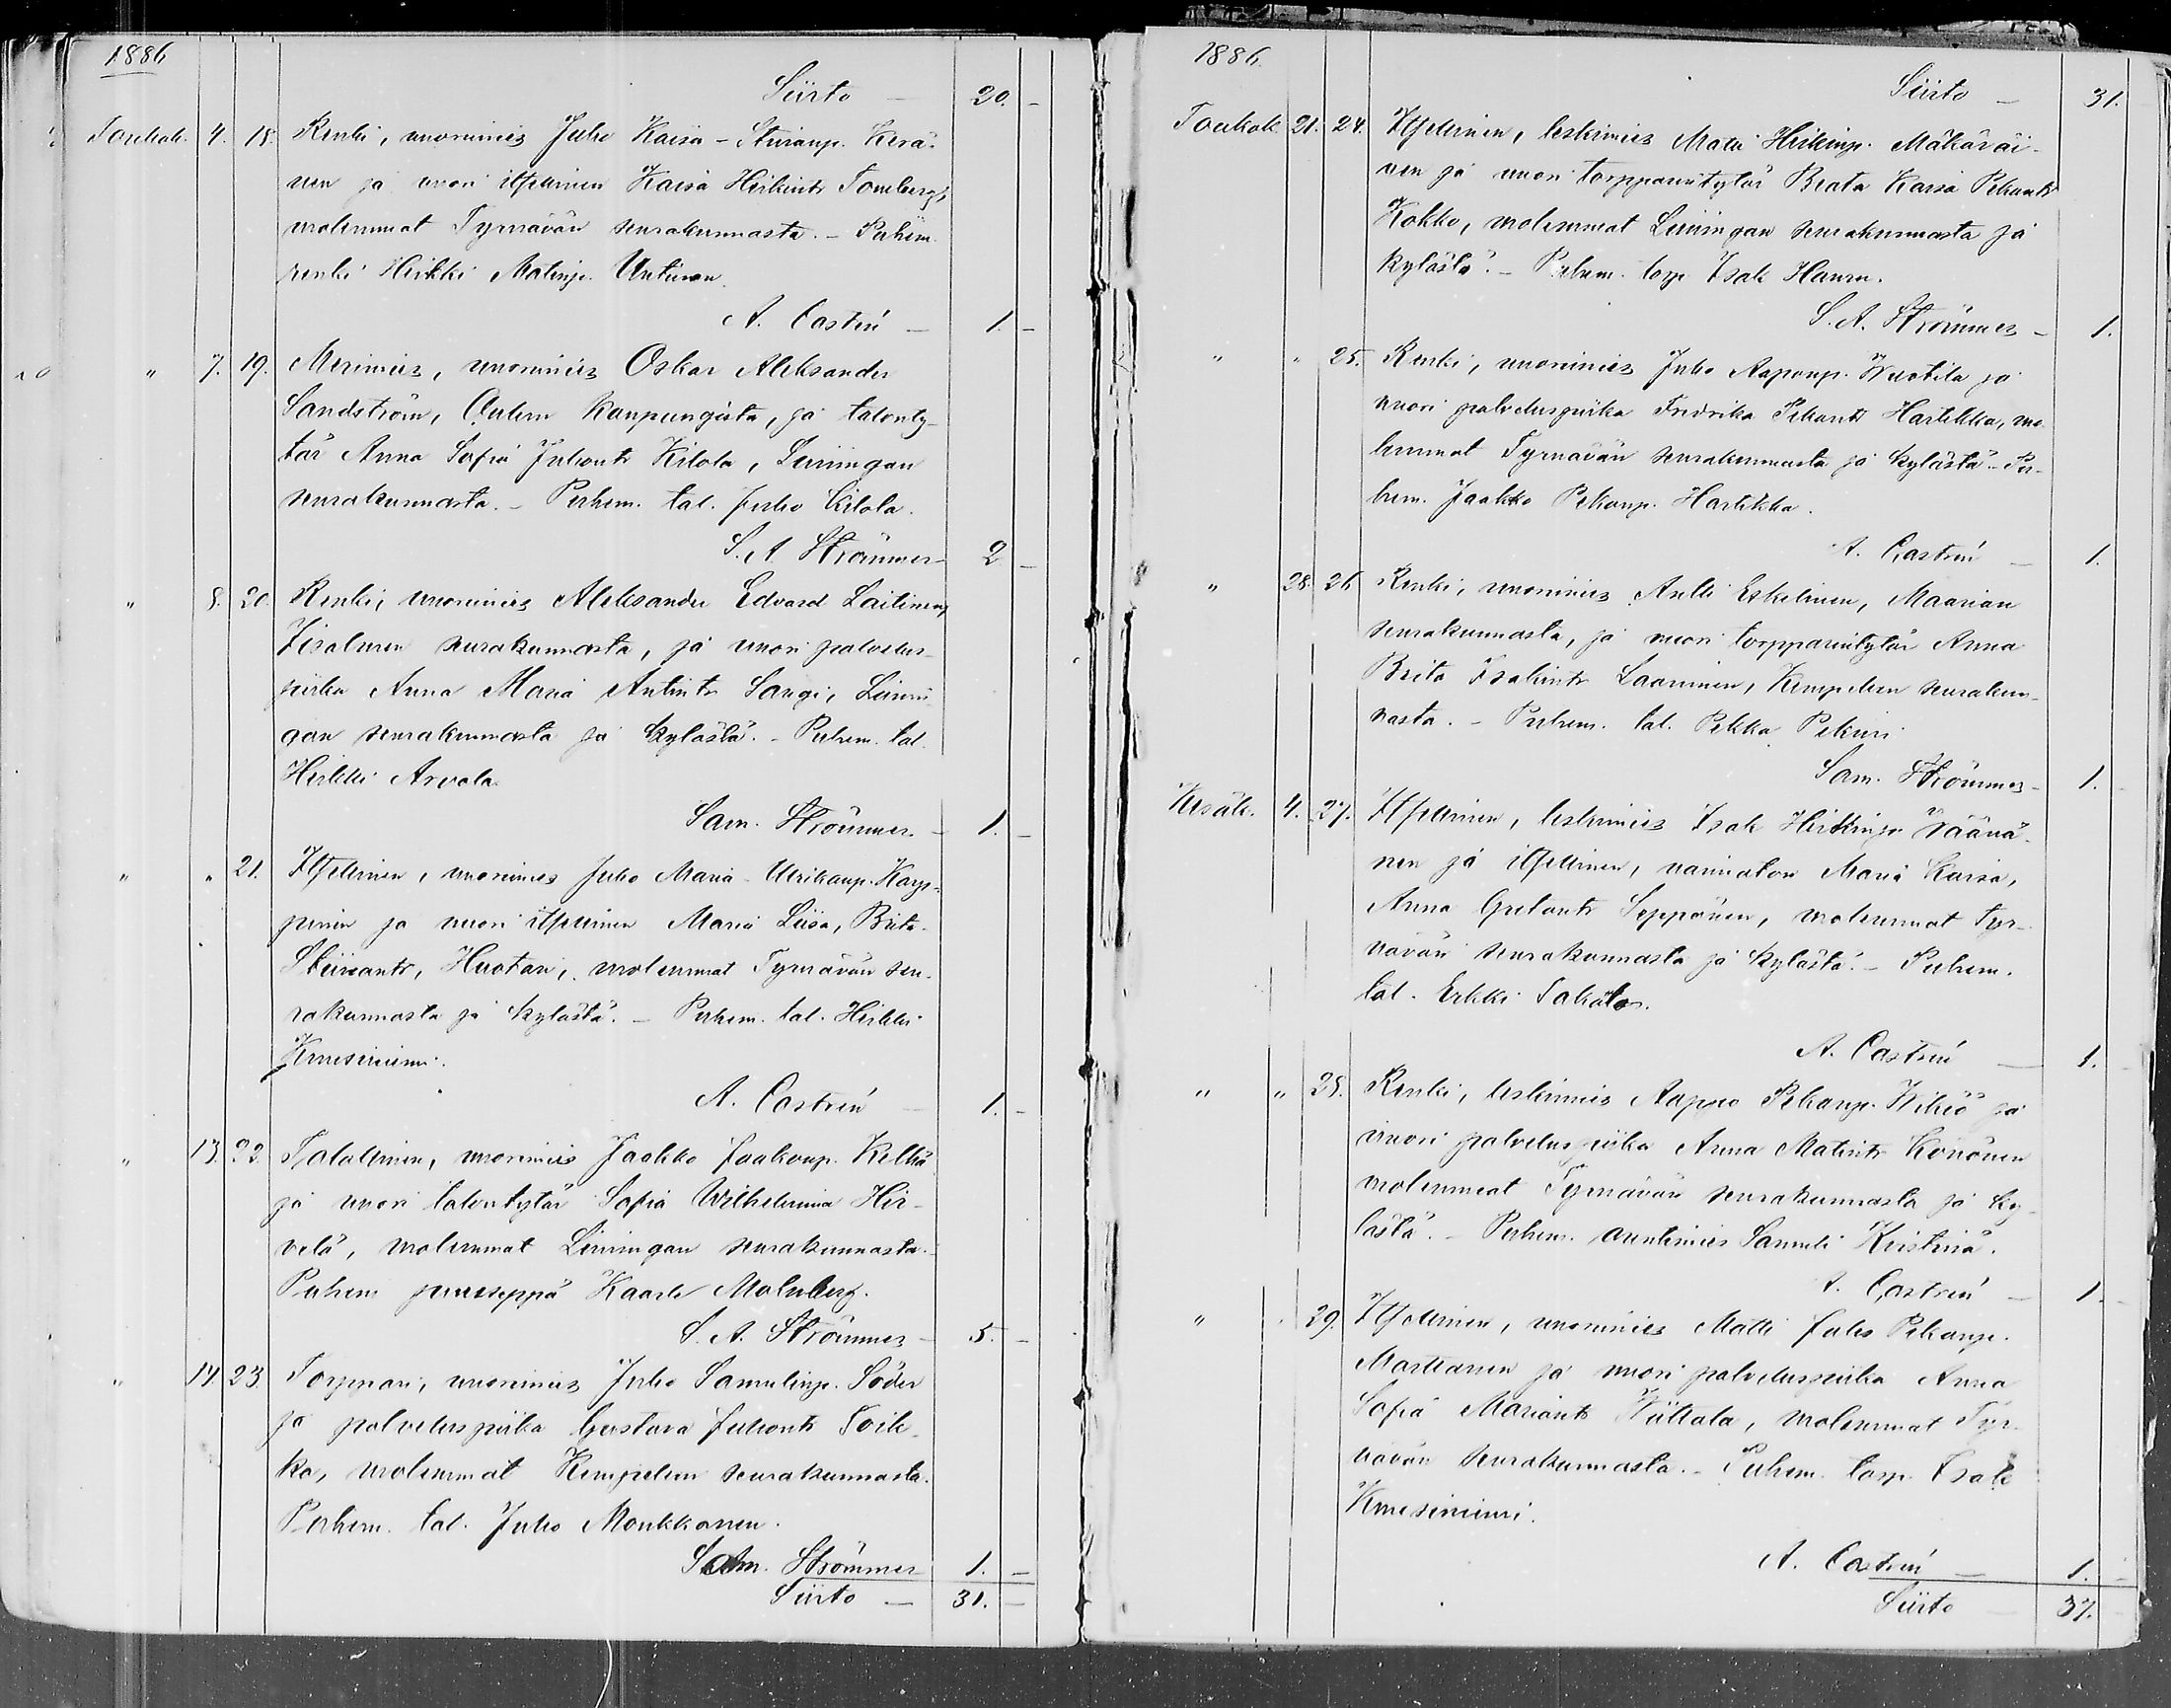 1886
Siirto — 20. —
Toukok. 4. 18. Renki, nuorimies Juho Kaisa-Stiinanp. Kerä-
nen ja nuori itsellinen Kaisa Heikintr Tomberg,
molemmat Tyrnävän seurakunnasta. — Puhem.
renki Heikki Matinp. Untinen.
A. Castrén — 1. —
" 7. 19. Merimies, nuorimies Oskar Aleksander
Sandström, Oulun kaupungista, ja talonty-
tär Anna Sofia Juhontr Kilola, Limingan
seurakunnasta. — Puhem. tal. Juho Kilola.
S. A. Strömmer — 2 —
" 8. 20. Renki, nuorimies Aleksander Edvard Laitinen,
Iisalmen seurakunnasta, ja nuori palvelus-
piika Anna Maria Antintr Sangi, Limin-
gan seurakunnasta ja kylästä. — Puhem. tal.
Heikki Arvola.
Sam. Strömmer. — 1. —
" " 21. Itsellinen, nuorimies Juho Maria-Ulrikanp. Karp-
pinen ja nuori itsellinen Maria Liisa, Brita-
Stiinantr, Huotari, molemmat Tyrnävän seu-
rakunnasta ja kylästä. — Puhem. tal. Heikki
Kuusiniemi.
A. Castrén — 1. —
" 13. 22. Talollinen, nuorimies Jaakko Jaakonp. Kelhä
ja nuori talontytär Sofia Wilhelmina Hir-
velä, molemmat Limingan seurakunnasta.
Puhem puuseppä Kaarle Malmberg.
S. A. Strömmer — 5. —
" 14. 23. Torppari, nuorimies Juho Samulinp. Söder
ja palveluspiika Gustava Juhontr Soik-
ka, molemmat Kempeleen seurakunnasta.
Puhem. tal. Juho Monkkanen.
Sam. Strömmer 1. —
Siirto — 31. —
1886.
Siirto — 31.
Toukok. 21. 24. Itsellinen, leskimies Matti Heikinp. Mäkäräi-
nen ja nuori torpparintytär Beata Kaisa Pekantr
Kokko, molemmat Limingan seurakunnasta ja
kylästä. — Puhem. torp. Isak Hannu.
S. A. Strömmer — 1.
" " 25. Renki, nuorimies Juho Aaponp. Wuotila ja
nuori palveluspiika Fredrika Pekantr Hartikka, mo-
lemmat Tyrnävän seurakunnasta ja kylästä. — Pu-
hem. Jaakko Pekanp. Hartikka.
A. Castrén — 1.
" 28. 26 Renki, nuorimies Antti Eskelinen, Maarian
seurakunnasta, ja nuori torpparintytär Anna
Brita Isakintr Laaninen, Kempeleen seurakun-
nasta. — Puhem. tal. Pekka Pekuri.
Sam. Strömmer — 1.
Kesäk. 4. 27. Itsellinen, leskimies Isak Heikinp. Väänä-
nen ja itsellinen, vaimoton Maria Kaisa,
Anna Gretantr Seppänen, molemmat Tyr-
nävän seurakunnasta ja kylästä. — Puhem.
tal. Erkki Takalo.
A. Castrén — 1.
" " 28. Renki, leskimies Aappo Pekanp. Wihiö ja
nuori palveluspiika Anna Matintr Könönen
molemmat Tyrnävän seurakunnasta ja ky-
lästä. — Puhem. auntimies Samuli Kristinä.
A. Castrén — 1.
" 29. Itsellinen, nuorimies Matti Juho Pekanp.
Marttanen ja nuori palveluspiika Anna
Sofia Mariantr Wiittala, molemmat Tyr-
nävän seurakunnasta. — Puhem. torp. Isak
Kuusiniemi.
A. Castrén — 1.
Siirto — 37.